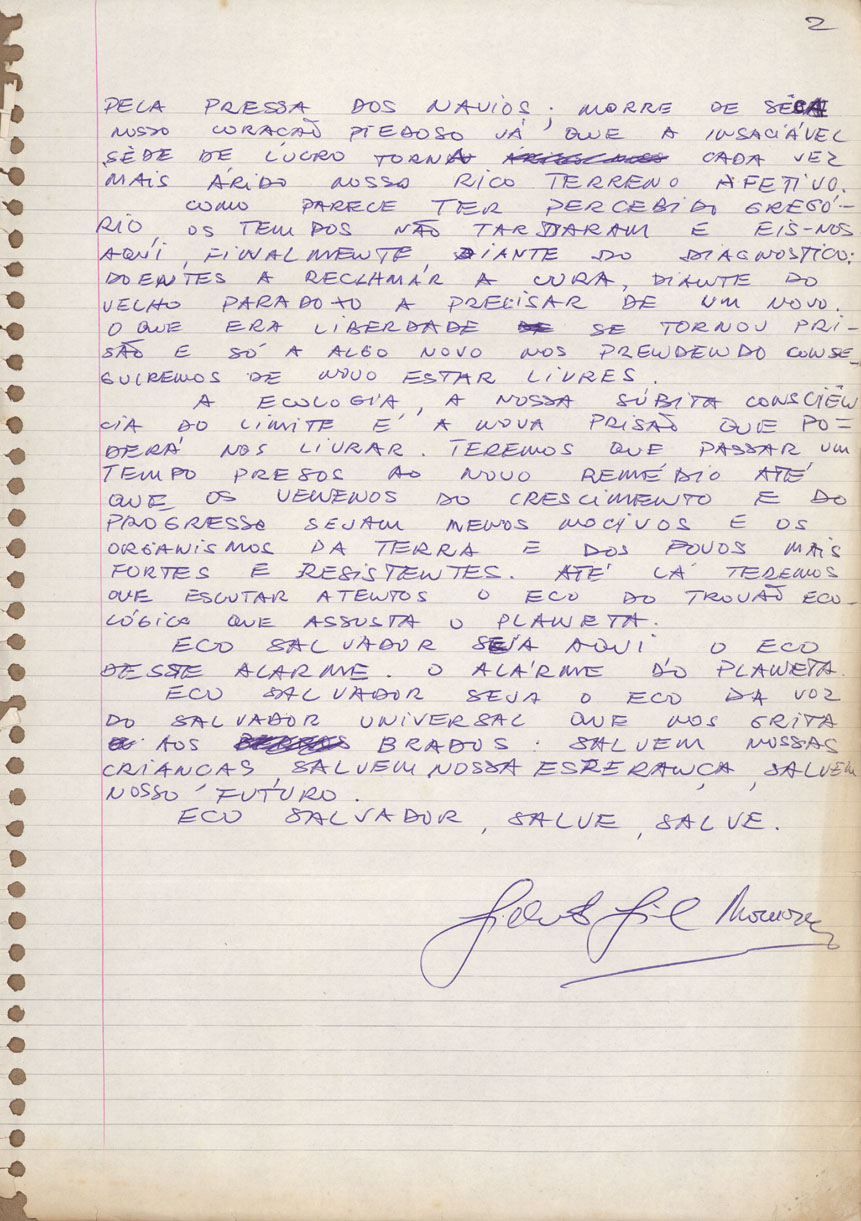 2
PELA PRESSA DOS NAVIOS. MORRE DE SÊCA
NOSSO CORAÇÃO PIEDOSO JÁ QUE A INSACIÁVEL
SÊDE DE LUCRO TORNA CADA VEZ
MAIS ÁRIDO NOSSO RICO TERRENO AFETIVO.
COMO PARECE TER PERCEBIDO GREGÓ-
RIO, OS TEMPOS NÃO TARDARAM E EIS-NOS
AQUI, FINALMENTE, DIANTE DO DIAGNOSTICO:
DOENTES A RECLAMAR A CURA, DIANTE DO
VELHO PARADOXO A PRECISAR DE UM NOVO.
O QUE ERA LIBERDADE SE TORNOU PRI-
SÃO E SÓ A ALGO NOVO NOS PRENDENDO CONSE-
GUIREMOS DE NOVO ESTAR LIVRES.
A ECOLOGIA, A NOSSA SÚBITA CONSCIÊN
CIA DO LIMITE É A NOVA PRISÃO QUE PO=
DERÁ NOS LIVRAR. TEREMOS QUE PASSAR UM
TEMPO PRESOS AO NOVO REMÉDIO ATÉ
QUE OS VENENOS DO CRESCIMENTO E DO
PROGRESSO SEJAM MENOS NOCIVOS E OS
ORGANISMOS DA TERRA E DOS POVOS MAIS
FORTES E RESISTENTES. ATÉ LÁ TEREMOS
QUE ESCUTAR ATENTOS O ECO DO TROVÃO ECO-
LÓGICO QUE ASSUSTA O PLANETA.
ECO SALVADOR SEJA AQUI O ECO
DESSE ALARME. O ALARME DO PLANETA.
ECO SALVADOR SEJA O ECO DA VOZ
DO SALVADOR UNIVERSAL QUE NOS GRITA
AOS BRADOS: SALVEM NOSSAS
CRIANÇAS, SALVEM NOSSA ESPERANÇA, SALVEM
NOSSO FUTURO.
ECO SALVADOR, SALVE, SALVE.
Gilberto Gil Moreira